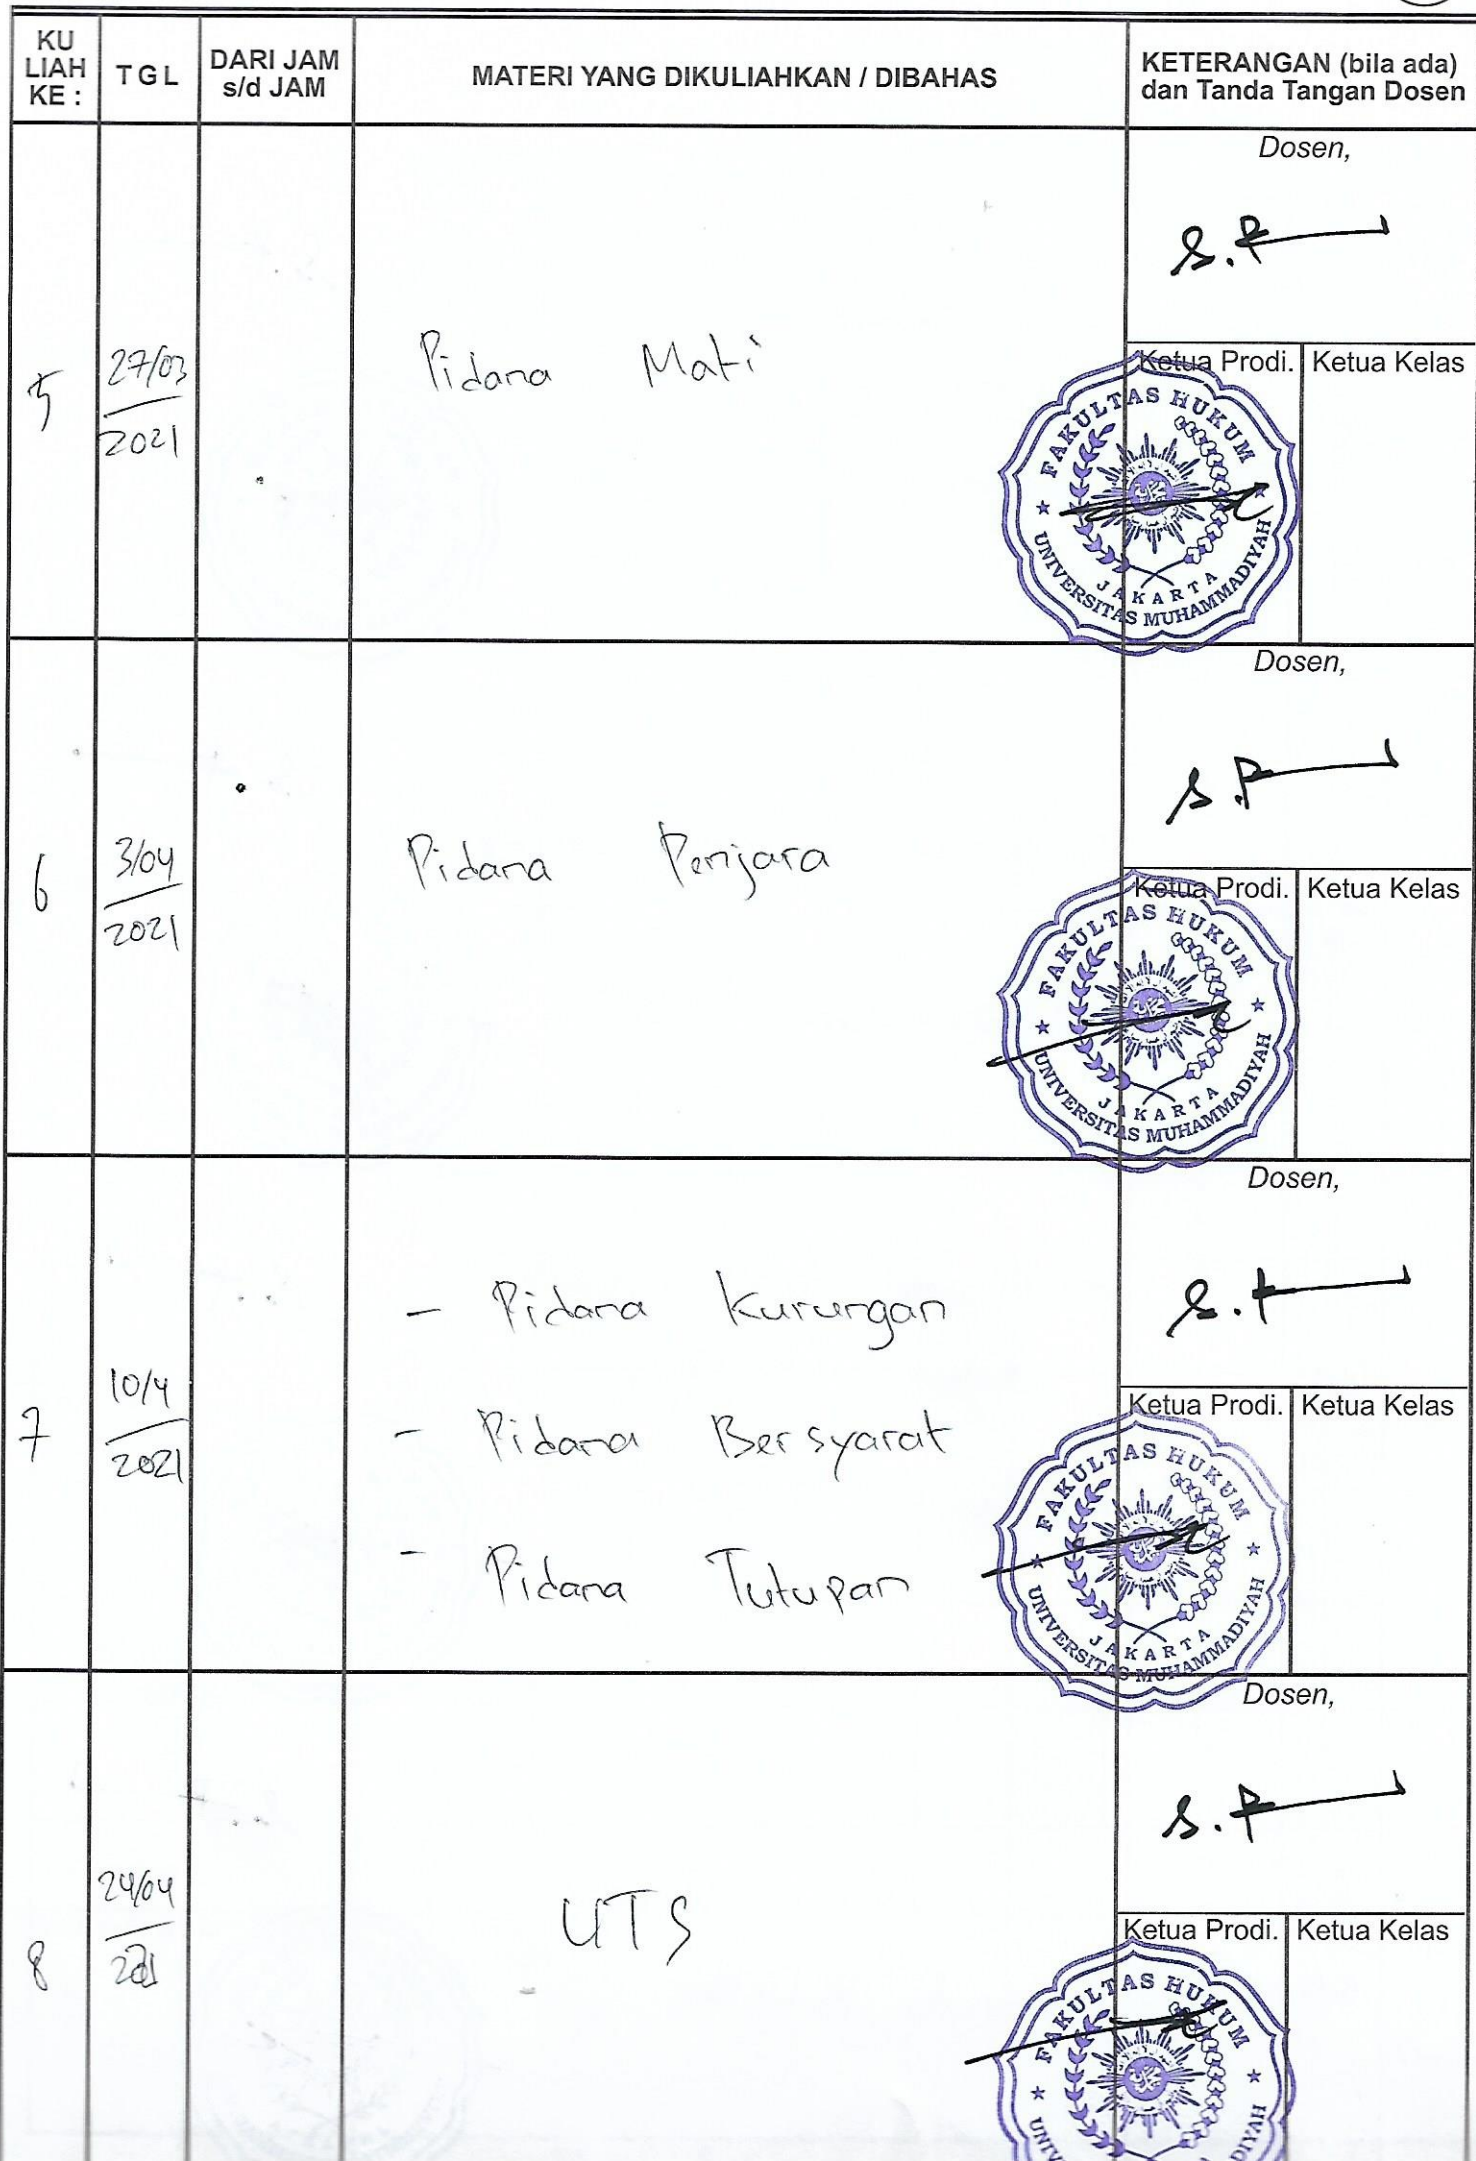 KU
LIAH
KE :
TGL
DARI JAM
s/d JAM
MATERI YANG DIKULIAHKAN / DIBAHAS
KETERANGAN (bila ada)
dan Tanda Tangan Dosen
5
27/03
2021
Pidana Mati
Dosen,
S.P
Ketua Prodi.
Ketua Kelas
FAKULTAS HUKUM
JAKARTA
UNIVERSITAS MUHAMMADIYAH
6
3/04
2021
Pidana Penjara
Dosen,
S.P
Ketua Prodi.
Ketua Kelas
FAKULTAS HUKUM
JAKARTA
UNIVERSITAS MUHAMMADIYAH
7
10/4
2021
- Pidana Kurungan
- Pidana Bersyarat
- Pidana Tutupan
Dosen,
Ketua Prodi.
Ketua Kelas
FAKULTAS HUKUM
JAKARTA
UNIVERSITAS MUHAMMADIYAH
8
24/04
UTS
Dosen,
S.P
Ketua Prodi.
Ketua Kelas
FAKULTAS HUKUM